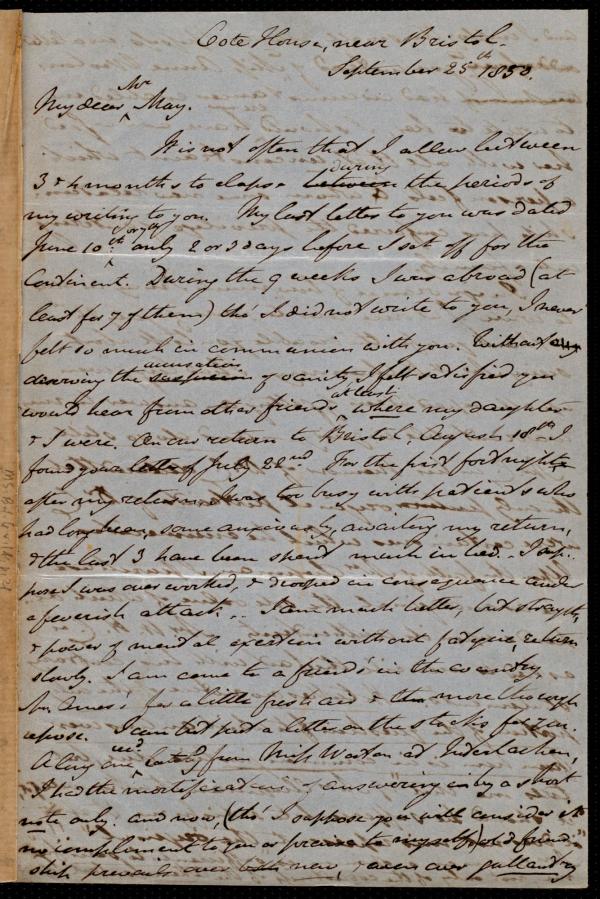 Cote House, near Bristol.
September 25th 1850.
My dear Mr May.
It is not often that I allow between
3 & 4 months to elapse between during the periods of
my writing to you. My last letter to you was dated
June 10th only 2 or 3 days before I set off for the
Continent. During the 9 weeks I was abroad (at
least for 7 of them) tho' I did not write to you, I never
felt so much in communion with you. Without any
deserving the suspicion accusation of vanity, I felt satisfied you
would hear from other friends at least where my daughter
& I were. On our return to Bristol, August 18th I
found your letter of July 22nd. For the first fortnight
after my return I was too busy with patients who
had long been, some anxiously, awaiting my return,
& the last 3 have been spent much in bed. I sup-
pose I was overworked, & drooped in consequence under
a feverish attack. I am much better, but strength,
& power of mental exertion without fatigue, return
slowly. I am come to a friend's in the country,
Mr. Ames's for a little fresh air & the more thorough
repose. I can but put a letter on the stocks for you.
A long one recd lately from Miss Weston at Interlachen,
I had the mortification of answering by a short
note only. and now, (tho' I suppose you will consider it
no compliment to you or praise to myself,) old friend-
ship prevails over both new, & even over gallantry